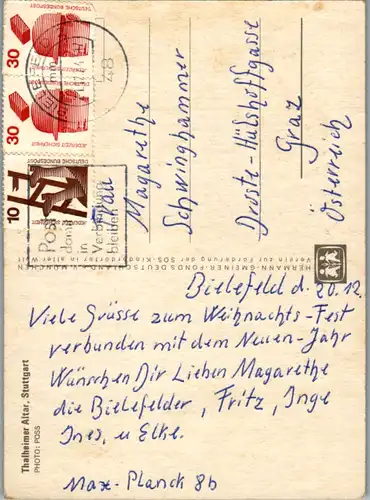 Bielefeld d. 20.12.
Viele Grüsse zum Weihnachts-Fest
verbunden mit dem Neuen-Jahr
Wünschen Dir Lieben Magarethe
die Bielefelder, Fritz, Inge
Ines, u Elke.
Max-Planck 8b
Frau
Magarethe
Schwinghammer
Droste-Hülshoffgasse
Graz
Österreich
Thalheimer Altar, Stuttgart
PHOTO: POSS
HERMANN-GMEINER-FONDS DEUTSCHLAND
Verein zur Förderung der SOS-Kinderdörfer in aller Welt
30
DEUTSCHE BUNDESPOST
JEDERZEIT SICHERHEIT
30
DEUTSCHE BUNDESPOST
JEDERZEIT SICHERHEIT
10
DEUTSCHE BUNDESPOST
JEDERZEIT SICHERHEIT
48
Post
damit
in
Verbindung
bleiben